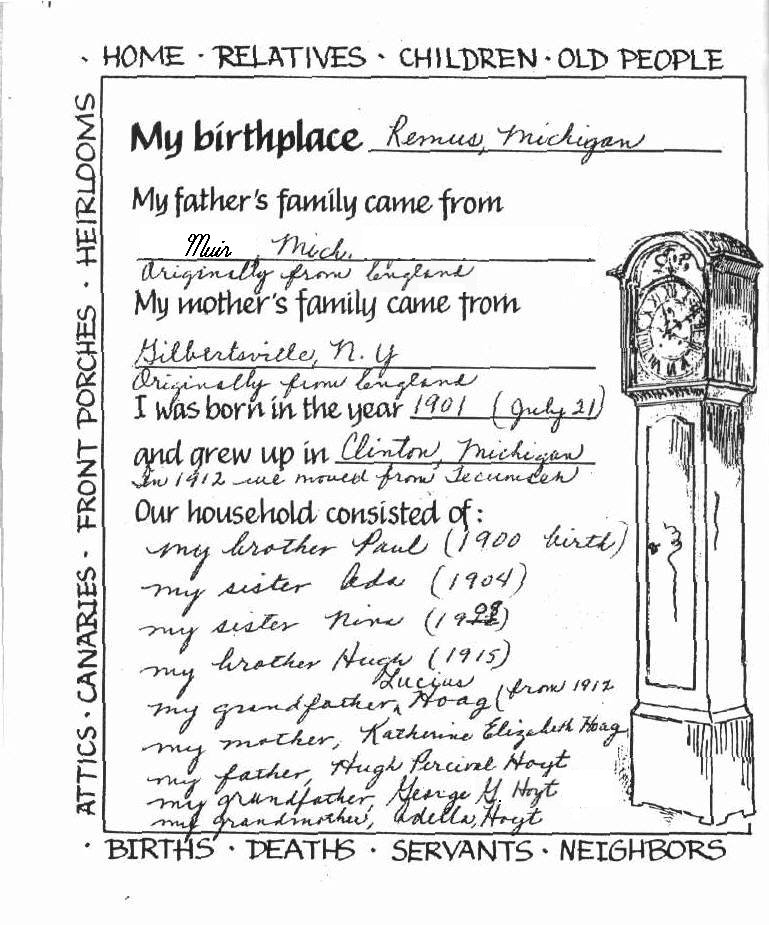 · HOME · RELATIVES · CHILDREN · OLD PEOPLE
ATTICS · CANARIES · FRONT PORCHES · HEIRLOOMS
My birthplace Remus, Michigan
My father's family came from
Muir, Mich.
Originally from England
My mother's family came from
Gilbertsville, N.Y
Originally from England
I was born in the year 1901 (July 21)
and grew up in Clinton, Michigan
In 1912 we moved from Tecumseh
Our household consisted of:
my brother Paul (1900 birth)
my sister Ada (1904)
my sister Nina (1908)
my brother Hugh (1915)
my grandfather, Lucius Hoag (from 1912
my mother, Katherine Elizabeth Hoag
my father, Hugh Percival Hoyt
my grandfather, George G. Hoyt
my grandmother, Adella, Hoyt
· BIRTHS · DEATHS · SERVANTS · NEIGHBORS